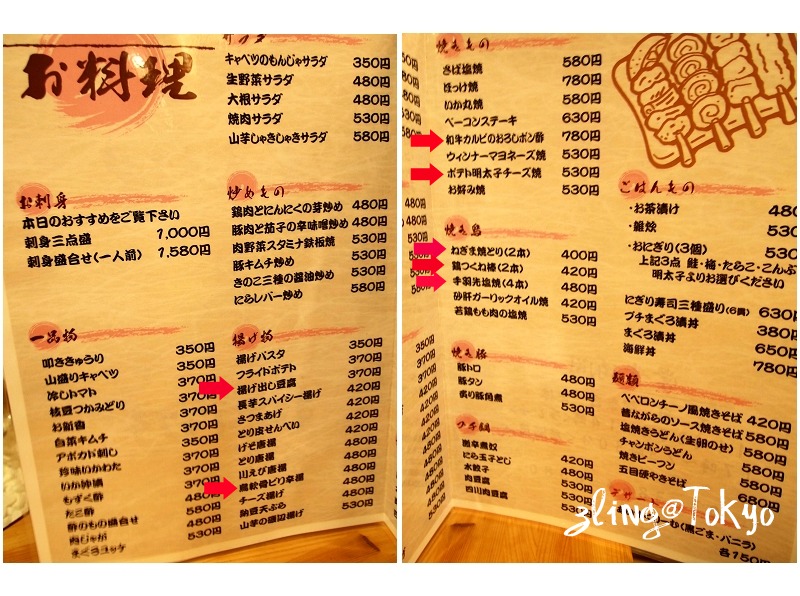 お料理
サラダ
キャベツのもんじゃサラダ 350円
生野菜サラダ 480円
大根サラダ 480円
焼肉サラダ 530円
山芋しゃきしゃきサラダ 580円
お刺身
本日のおすすめをご覧下さい
刺身三点盛 1,000円
刺身盛合せ(一人前) 1,580円
炒めもの
鶏肉とにんにくの芽炒め 480円
豚肉と茄子の辛味噌炒め 480円
肉野菜スタミナ鉄板焼 530円
豚キムチ炒め 530円
きのこ三種の醤油炒め 530円
にらレバー炒め 580円
一品物
叩ききゅうり 350円
山盛りキャベツ 350円
冷しトマト 370円
枝豆つかみどり 370円
お新香 370円
白菜キムチ 350円
アボカド刺し 370円
珍味いかわた
いか沖漬 370円
もずく酢 480円
たこ酢 580円
酢のもの盛合せ 480円
肉じゃが 530円
まぐろユッケ
揚げ物
揚げパスタ 350円
フライドポテト 370円
揚げ出し豆腐 370円
長芋スパイシー揚げ 420円
さつまあげ 420円
とり皮せんべい 420円
げそ唐揚 480円
とり唐揚 480円
川えび唐揚 480円
鶏軟骨ピリ辛揚 480円
チーズ揚げ 480円
納豆天ぷら 530円
山芋の磯辺揚げ
焼きもの
さば塩焼 580円
ほっけ焼 780円
いか丸焼 580円
ベーコンステーキ 630円
和牛カルビのおろしポン酢 780円
ウィンナーマヨネーズ焼 530円
ポテト明太子チーズ焼 530円
お好み焼 530円
焼き鳥
ねぎま焼とり(2本) 400円
鶏つくね棒(2本) 420円
手羽先塩焼(4本) 480円
砂肝ガーリックオイル焼 420円
若鶏もも肉の塩焼 530円
焼き豚
豚トロ
豚タン 480円
炙り豚角煮 480円
530円
プチ鍋
激辛煮奴
にら玉子とじ 420円
水餃子 480円
肉豆腐 530円
四川肉豆腐 530円
ごはんもの
・お茶漬け 480
・雑炊 530
・おにぎり(3個) 530円
上記3点 鮭・梅・たらこ・こんぶ
明太子よりお選びください
にぎり寿司三種盛り(6貫) 630円
プチまぐろ漬丼 380円
まぐろ漬丼 650円
海鮮丼 780円
麺類
ペペロンチーノ風焼きそば 420円
昔ながらのソース焼きそば 580円
塩焼きうどん(生卵のせ) 580円
チャンポンうどん 580円
焼きビーフン 580円
五目硬やきそば 680円
デザート
(黒ごま・バニラ)
各150円
zling@Tokyo